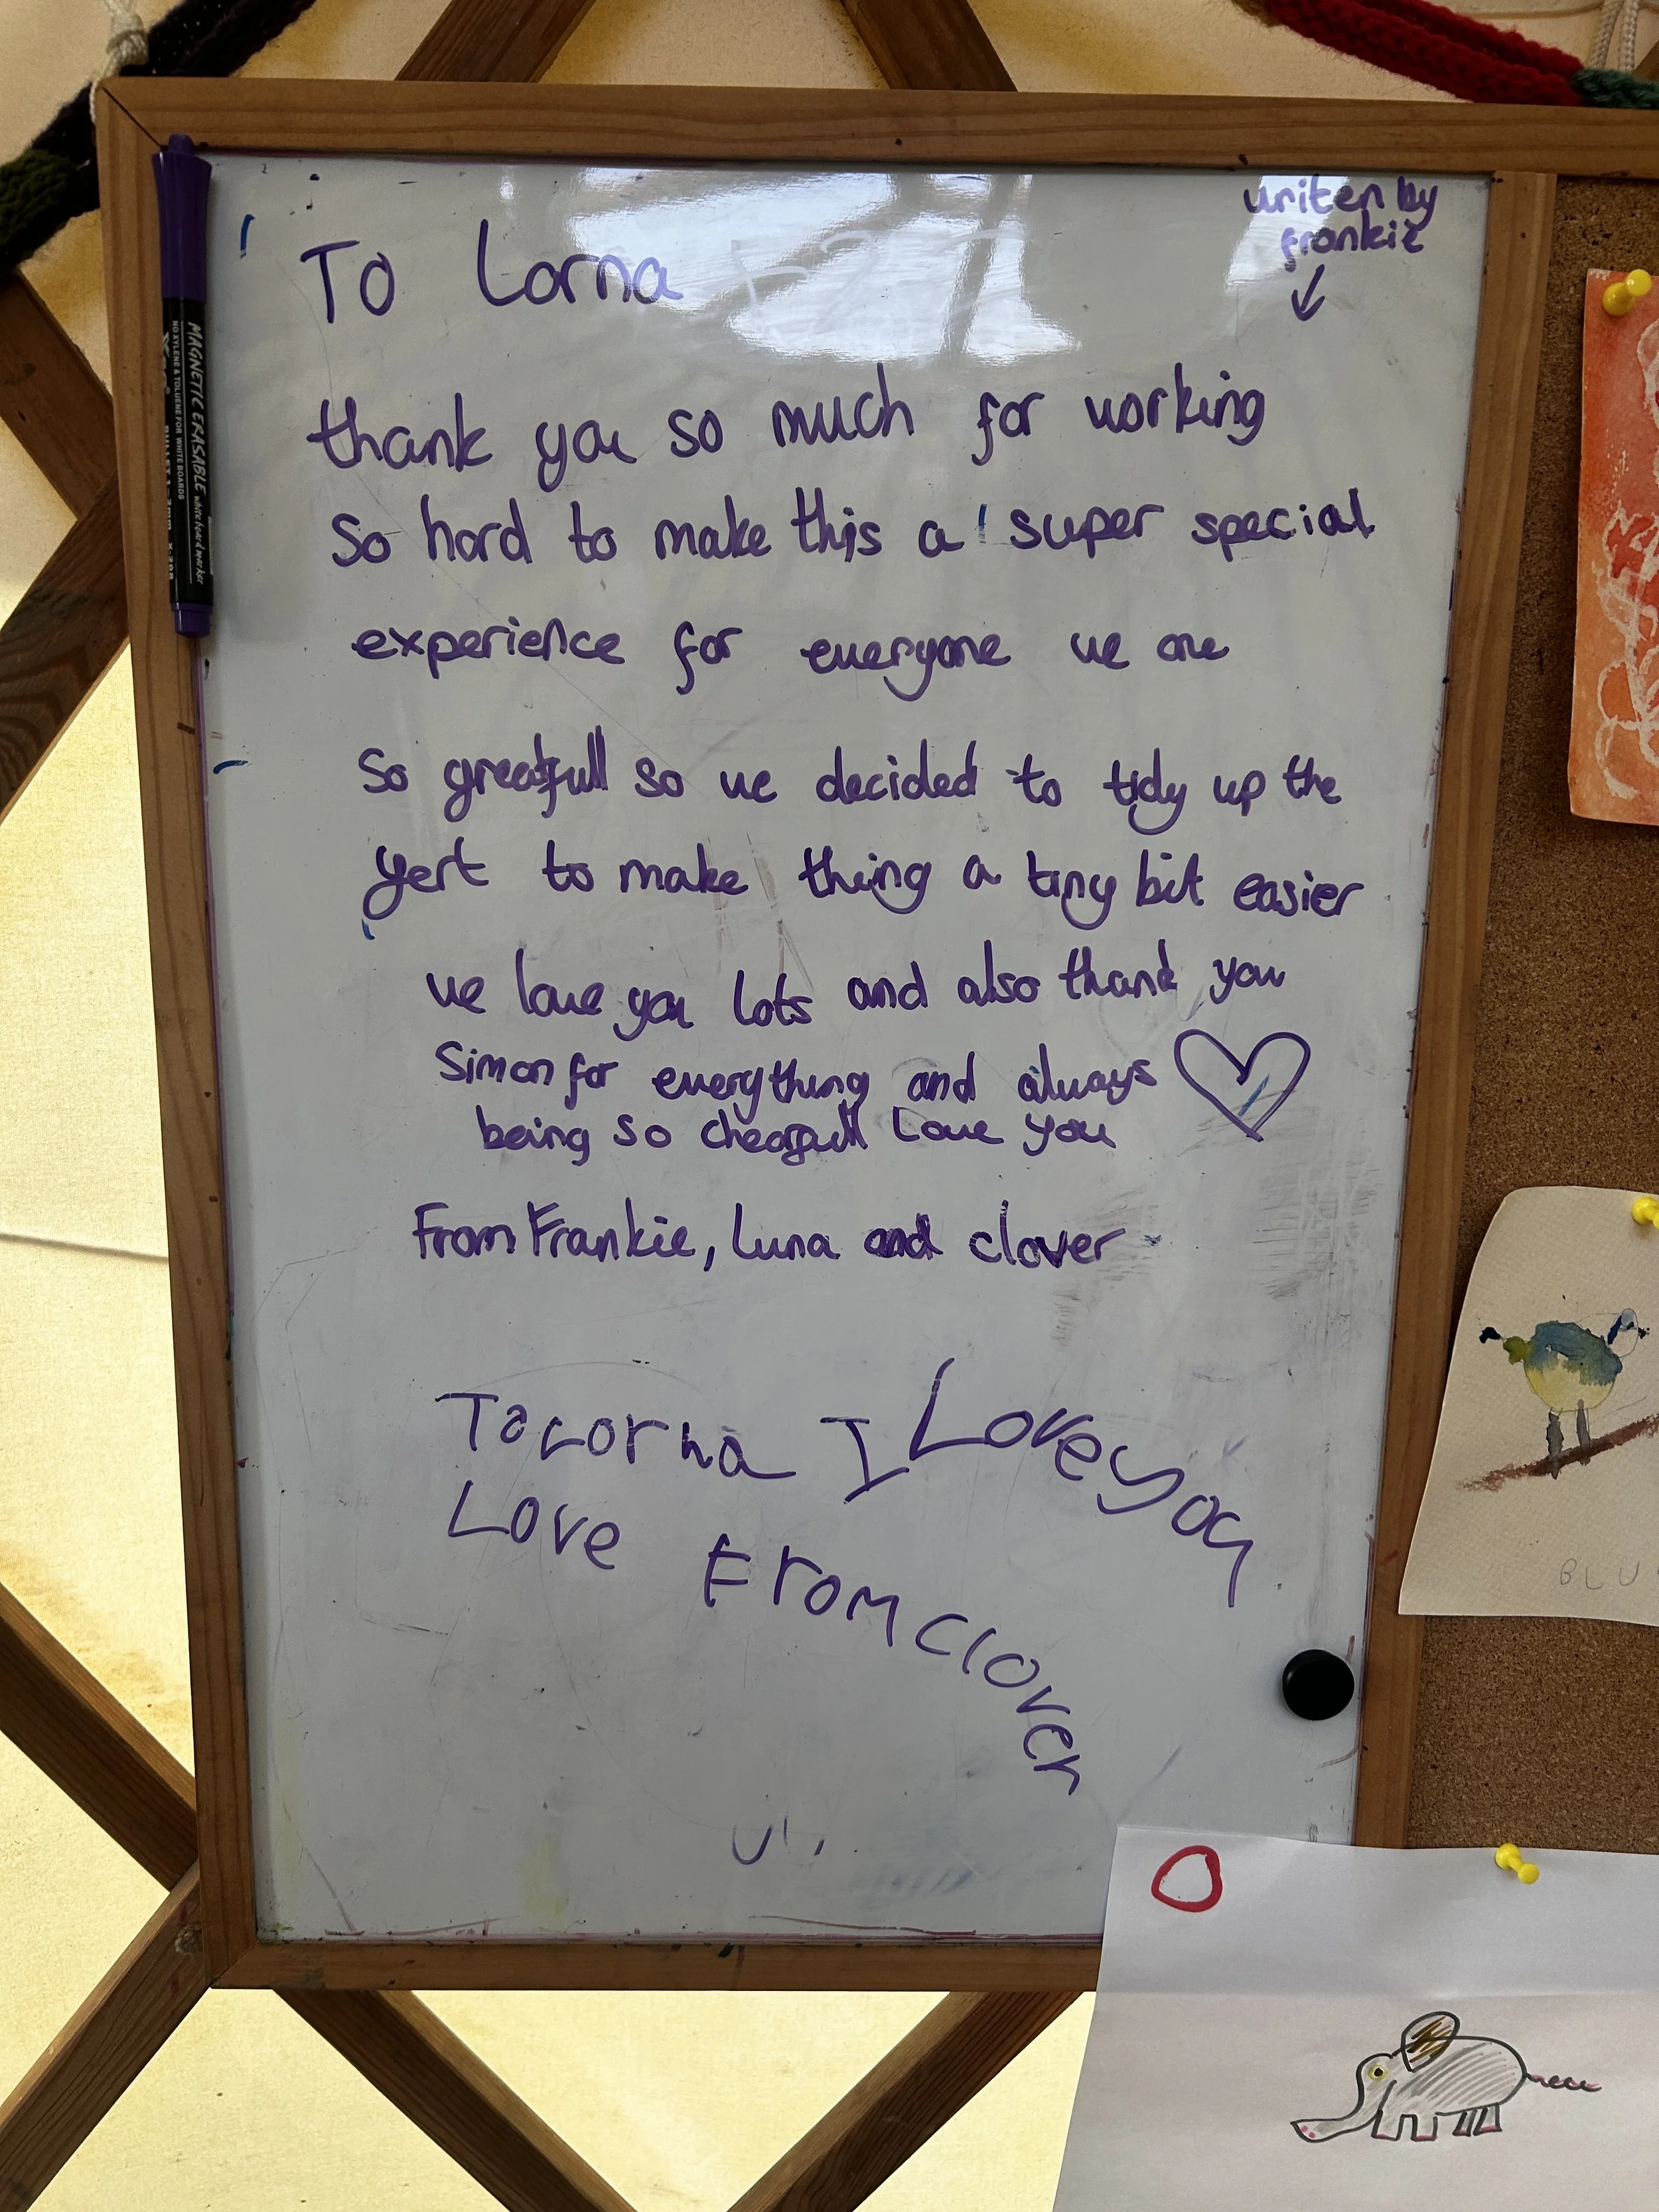 writen by
frankie
To Lorna
thank you so much for working
so hard to make this a super special
experience for everyone we are
so greatfull so we decided to tidy up the
yert to make thing a tiny bit easier
we love you lots and also thank you
Simon for everything and always
being so chearfull love you
From Frankie, Luna and clover
To Lorna I Love you
Love From Clover
MAGNETIC ERASABLE whiteboard marker
NO XYLENE & TOLUENE FOR WHITE BOARDS
BLU